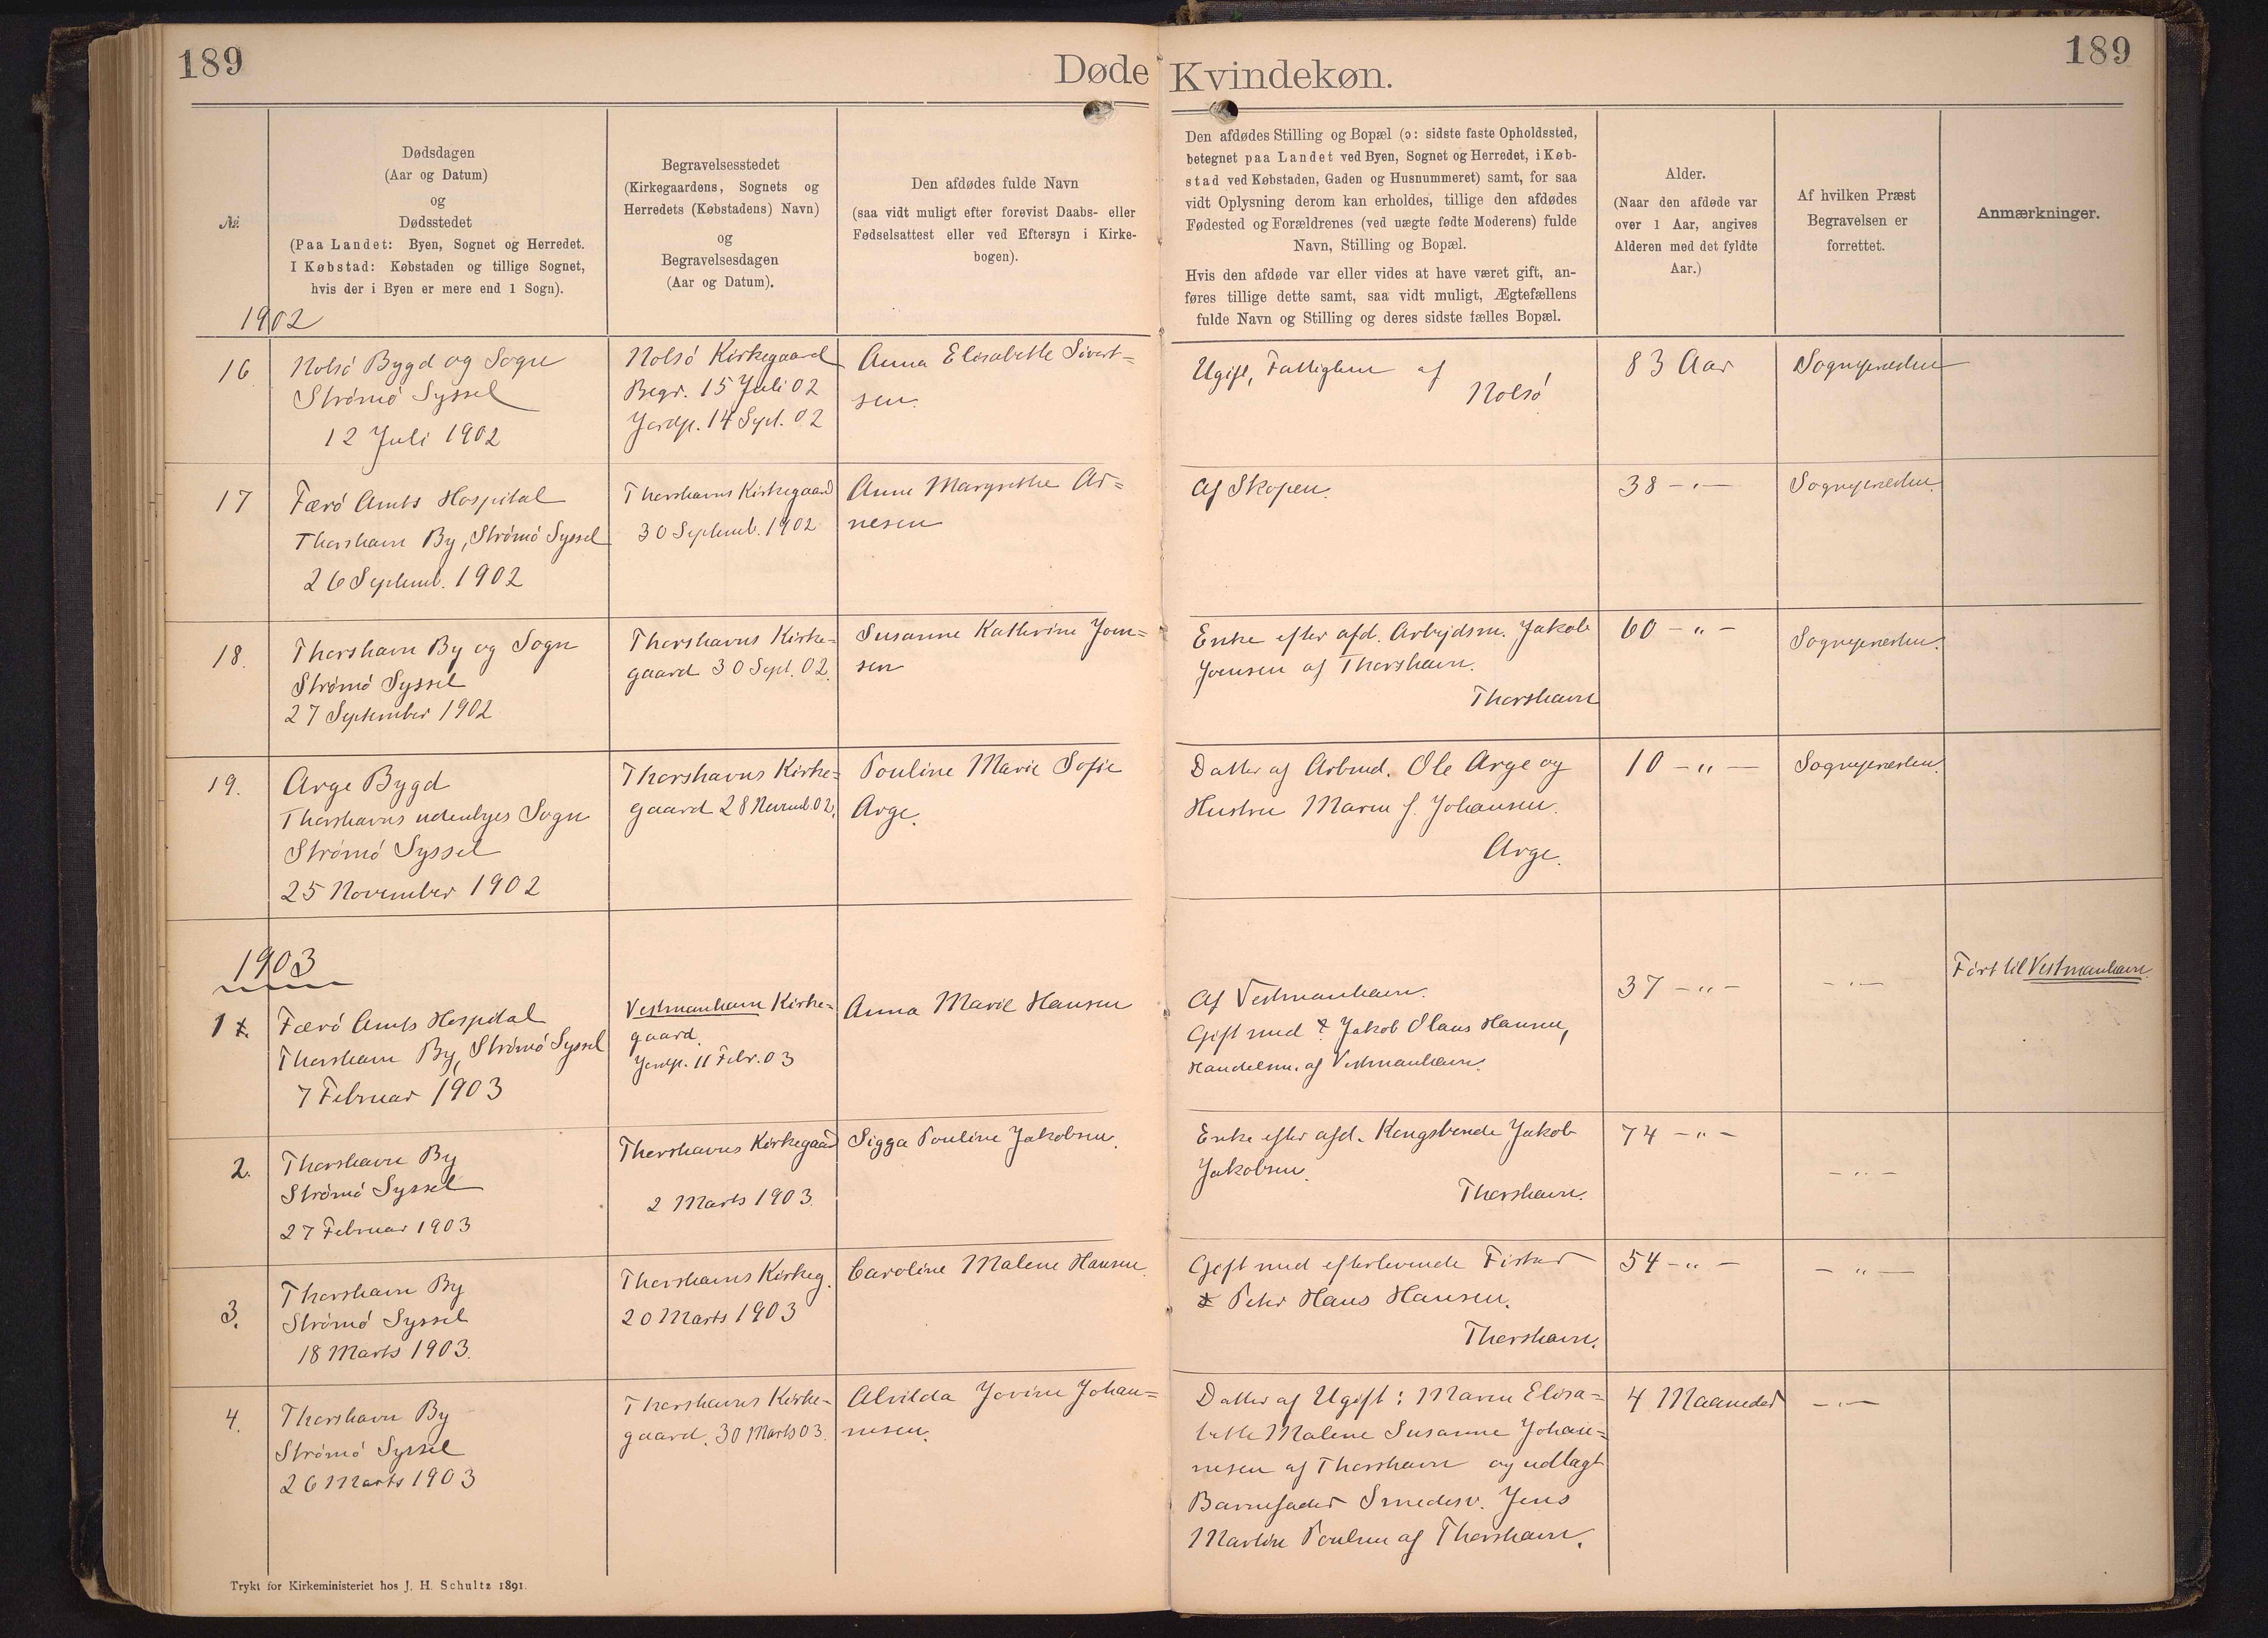 189
Døde
Kvindekøn.
189
№
Dødsdagen
(Aar og Datum)
og
Dødsstedet
(Paa Landet: Byen, Sognet og Herredet.
I Købstad: Købstaden og tillige Sognet,
hvis der i Byen er mere end 1 Sogn).
Begravelsesstedet
(Kirkegaardens, Sognets og
Herredets (Købstadens) Navn)
og
Begravelsesdagen
(Aar og Datum).
Den afdødes fulde Navn
(saa vidt muligt efter forevist Daabs- eller
Fødselsattest eller ved Eftersyn i Kirke-
bogen).
Den afdødes Stilling og Bopæl (ɔ: sidste faste Opholdssted,
betegnet paa Landet ved Byen, Sognet og Herredet, i Køb-
stad ved Købstaden, Gaden og Husnummeret) samt, for saa
vidt Oplysning derom kan erholdes, tillige den afdødes
Fødested og Forældrenes (ved uægte fødte Moderens) fulde
Navn, Stilling og Bopæl.
Hvis den afdøde var eller vides at have været gift, an-
føres tillige dette samt, saa vidt muligt, Ægtefællens
fulde Navn og Stilling og deres sidste fælles Bopæl.
Alder.
(Naar den afdøde var
over 1 Aar, angives
Alderen med det fyldte
Aar.)
Af hvilken Præst
Begravelsen er
forrettet.
Anmærkninger.
1902
16
Nolsö Bygd og Sogn
Strömö Syssel
12 Juli 1902
Nolsö Kirkegaard
Begr. 15 Juli 02
Jordp. 14 Sept. 02
Anna Elisabette Sivert=
sen.
Ugift, Fattiglem af
Nolsö
83 Aar
Sognepræsten
17
Færö Amts Hospital
Thorshavn By, Strömö Syssel
26 Septemb. 1902
Thorshavns Kirkegaard
30 Septemb. 1902
Anne Margrethe Ar=
nesen
Af Skopen.
38 -"-
Sognepræsten.
18.
Thorshavn By og Sogn
Strömö Syssel
27 September 1902
Thorshavns Kirke=
gaard 30 Sept. 02.
Susanne Kathrine Joen=
sen
Enke efter afd. Arbejdsm. Jakob
Joensen af Thorshavn.
Thorshavn
60 -"-
Sognepræsten.
19.
Arge Bygd
Thorshavns udenbyes Sogn
Strömö Syssel
25 November 1902
Thorshavns Kirke=
gaard 28 Novemb. 02.
Pouline Marie Sofie
Arge.
Datter af Arbmd. Ole Arge og
Hustru Maren f. Johansen.
Arge.
10 -"-
Sognepræsten.
1903
1
Færö Amts Hospital
Thorshavn By, Strömö Syssel
7 Februar 1903
Vestmanhavn Kirke=
gaard.
Jordp. 11 Febr. 03
Anna Marie Hansen
Af Vestmanhavn.
Gift med Jakob Olaus Hansen,
Handelsm. af Vestmanhavn.
37 -"-
-"-
Fört til Vestmanhavn.
2.
Thorshavn By
Strömö Syssel
27 Februar 1903
Thorshavns Kirkegaard
2 Marts 1903.
Sigga Pouline Jakobsen.
Enke efter afd. Kongsbonde Jakob
Jakobsen.
Thorshavn.
74 -"-
-"-
3.
Thorshavn By
Strömö Syssel
18 Marts 1903.
Thorshavns Kirkeg.
20 Marts 1903
Caroline Malene Hansen.
Gift med efterlevende Fisker
Peter Hans Hansen.
Thorshavn.
54 -"-
-"-
4.
Thorshavn By
Strömö Syssel
26 Marts 1903
Thorshavns Kirke-
gaard. 30 Marts 03.
Alvilda Jovine Johan=
nesen.
Datter af Ugift: Maren Elisa=
bette Malene Susanne Johan=
nesen af Thorshavn og udlagt
Barnefader Smedesv. Jens
Martin Poulsen af Thorshavn.
4 Maaneder
-"-
Trykt for Kirkeministeriet hos J. H. Schultz 1891.